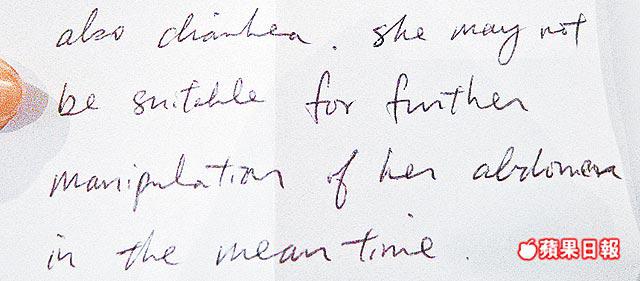 also diarrhea. she may not
be suitable for further
manipulation of her abdomen
in the mean time.
蘋果日報